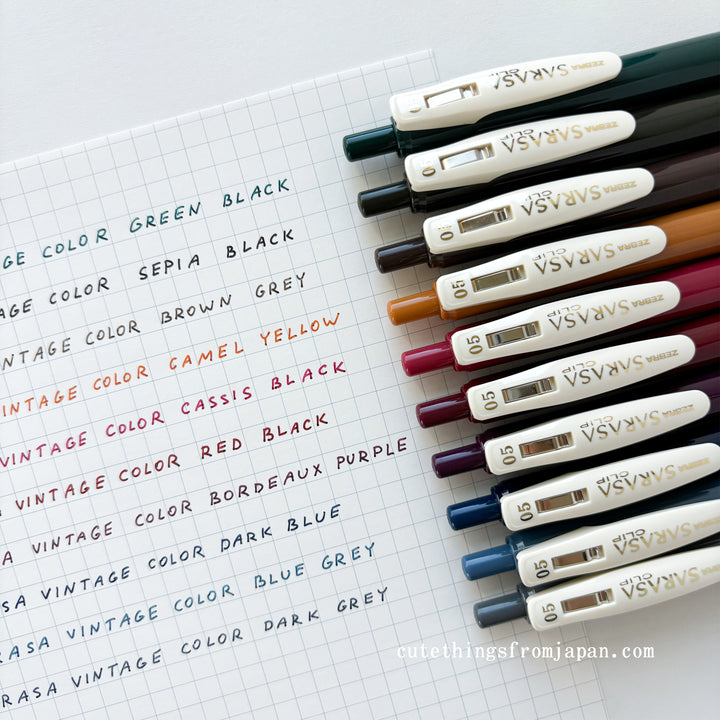 GE COLOR GREEN BLACK
AGE COLOR SEPIA BLACK
NTAGE COLOR BROWN GREY
INTAGE COLOR CAMEL YELLOW
VINTAGE COLOR CASSIS BLACK
A VINTAGE COLOR RED BLACK
A VINTAGE COLOR BORDEAUX PURPLE
SA VINTAGE COLOR DARK BLUE
RASA VINTAGE COLOR BLUE GREY
RASA VINTAGE COLOR DARK GREY
ZEBRA SARASA CLIP
ZEBRA SARASA CLIP
ZEBRA SARASA CLIP 05
ZEBRA SARASA CLIP 05
ZEBRA SARASA CLIP 05
ZEBRA SARASA CLIP 05
ZEBRA SARASA CLIP 05
ZEBRA SARASA CLIP 05
ZEBRA SARASA CLIP 05
ZEBRA SARASA CLIP 05
cutethingsfromjapan.com